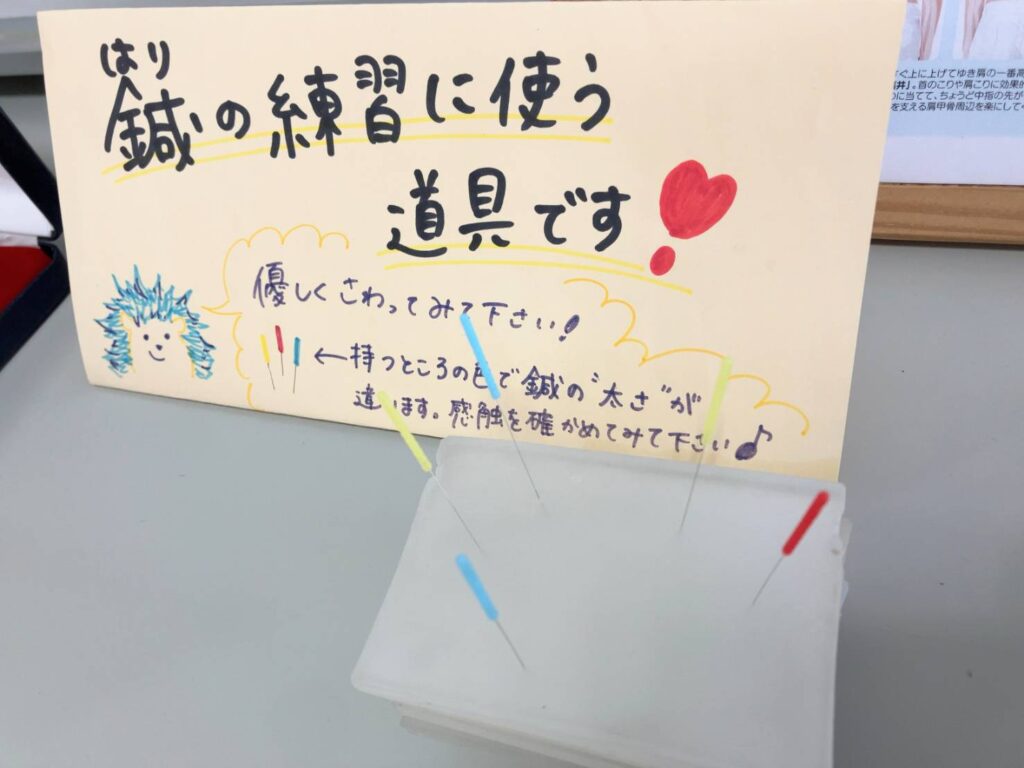 はり
鍼の練習に使う
道具です
優しくさわってみて下さい!
←持つところの色で鍼の"太さ"が
違います。感触を確かめてみて下さい♪
ぐ上に上げてゆき肩の一番高
井」。首のこりや肩こりに効果的
に当てて、ちょうど中指の先が
を支える肩甲骨周辺を楽にして